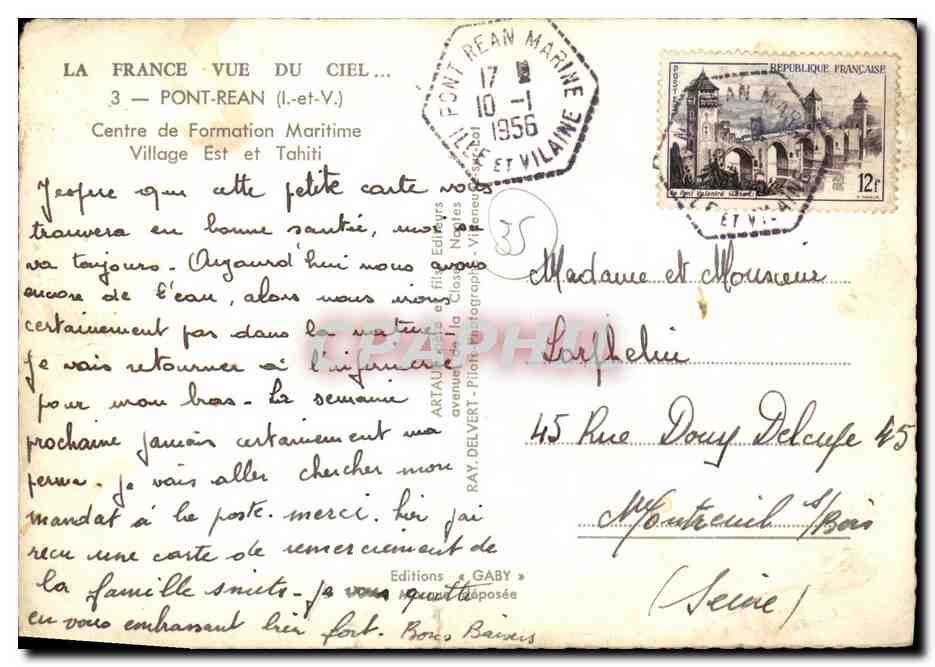 LA FRANCE VUE DU CIEL...
3 — PONT-REAN (I.-et-V.)
Centre de Formation Maritime
Village Est et Tahiti
J'espère que cette petite carte vous
trouvera en bonne santée, moi ça
va toujours. Aujourd'hui nous avons
encore de l'eau, alors nous irons
certainement pas dans la nature
je vais retourner à l'infirmerie
pour mon bras. La semaine
prochaine j'aurais certainement ma
perme. je vais aller chercher mon
mandat à la poste. merci. hier j'ai
recu une carte de remerciement de
la famille smits. Je vous quitte
en vous embrassant bien fort. Bons Baisers
ARTAUD père et fils, Editeurs
avenue de la Close, Nantes
RAY. DELVERT - Pilote-Photographe - Villeneuve-sur-Lot
Editions « GABY »
Marque déposée
PONT REAN MARINE
17
10 -1
1956
ILLE ET VILAINE
35
POSTES
REPUBLIQUE FRANÇAISE
Le Pont Valentré
12F
REAN MARINE
ILLE ET VILAINE
Madame et Monsieur
Lorphelin
45 Rue Douy Delcupe 45
Montreuil s/Bois
(Seine)
CPAPHIL